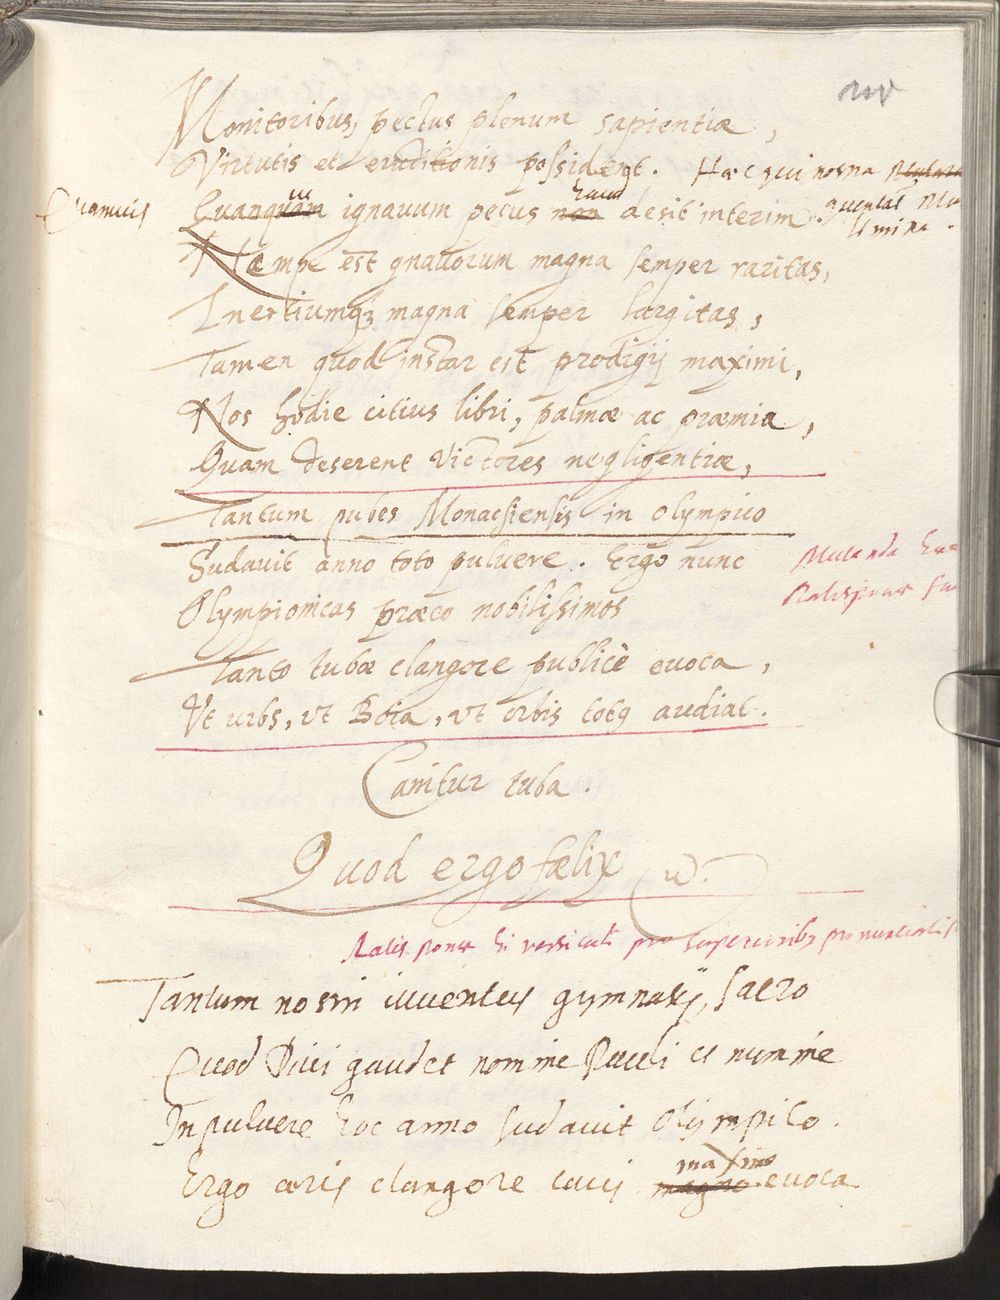 Monitoribus, pectus plenum sapientiæ,
Virtutis et eruditionis possident. Hæc qui nos
Quamuis
Quanquam ignauum pecus haud non desit interim
Næmpe est gnauorum magna semper raritas,
Inertiumq3 magna semper largitas,
Tamen quod instar est prodigij maximi,
Nos hodie citius libri, palmæ ac præmia,
Quam deserent Victores negligentiæ,
Tantum pubes Monachiensis in olympico
Sudauit anno toto puluere. Ergo nunc
Mutanda
Ratisponæ
Olympionicas præco nobilissimos
Tanto tubæ clangore publicè euoca,
Vt urbs, vt Boia, vt orbis totq audiat.
Canitur tuba.
Quod ergo fælix
Ratisponæ hi versiculi pro superioribq pronunciati
Tantum nostri iuuentus gymnasij, sacro
Quod Diui gaudet nomine Pauli et numine
In puluere hoc anno sudauit Olympico.
Ergo æris clangore maximo magno euoca